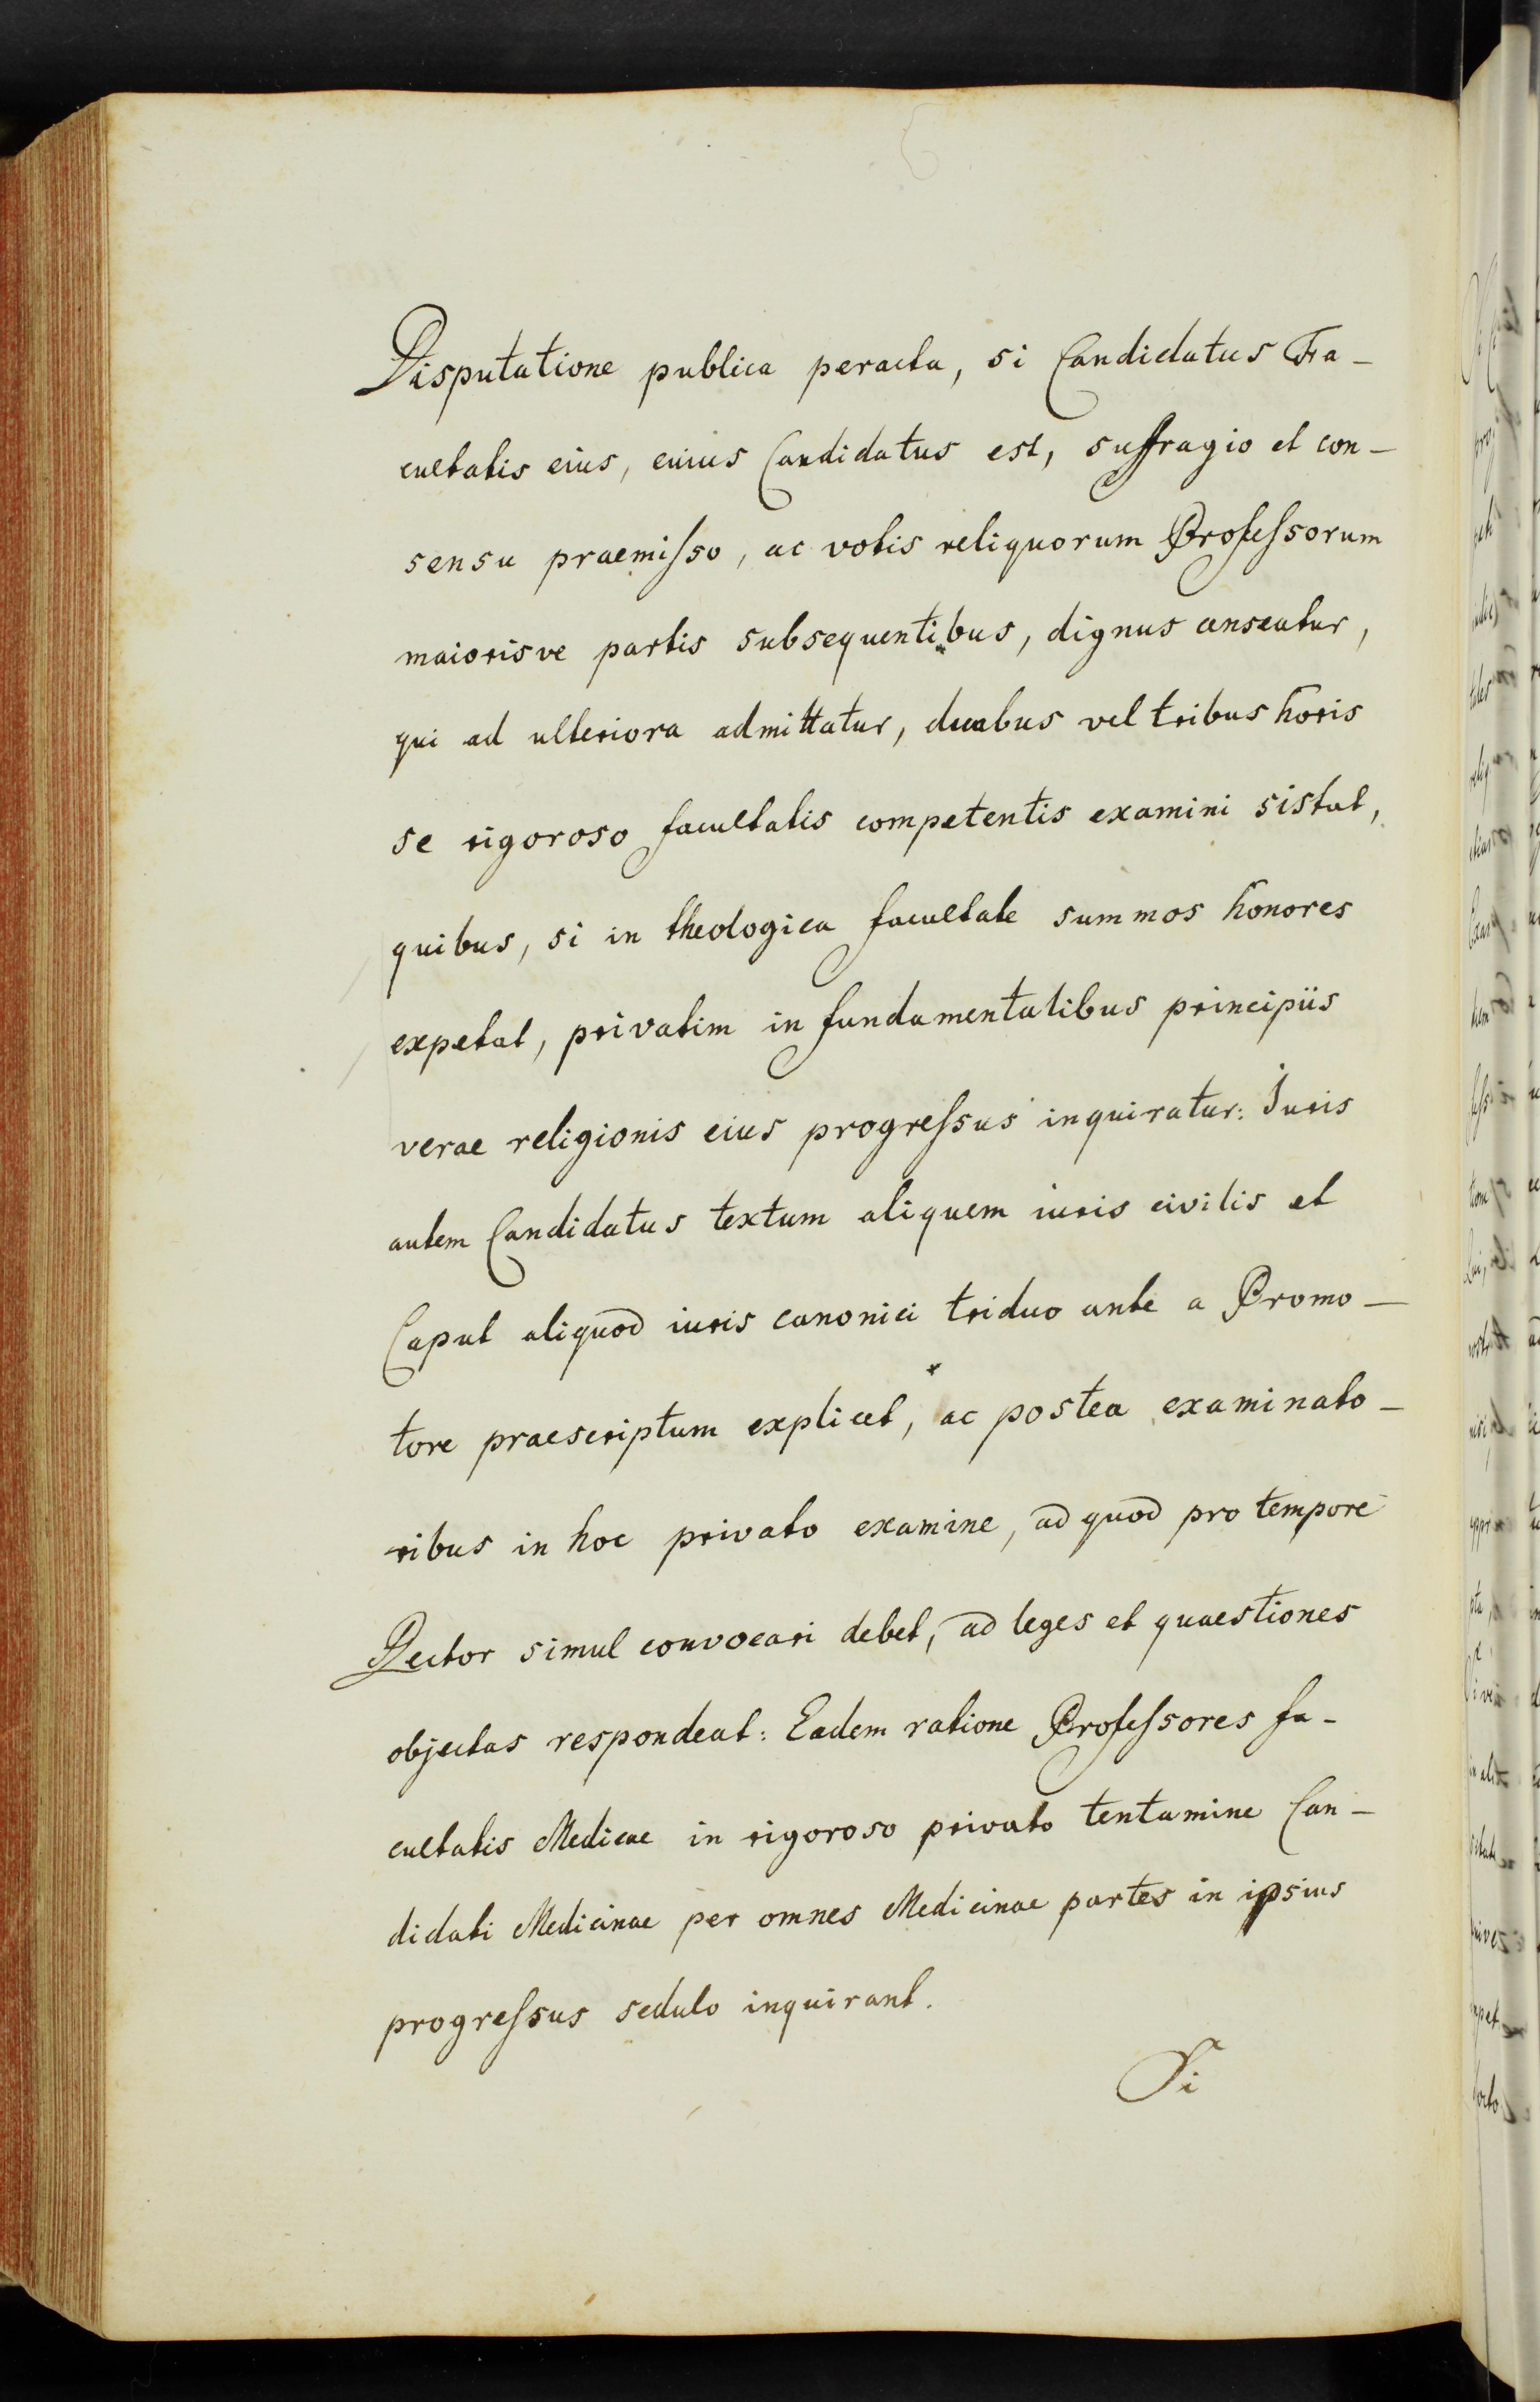 Disputatione publica peracta, si Candidatus Fa-
cultatis eius, cuius Candidatus est, suffragio et con-
sensu praemiſso, ac votis reliquorum Profeſsorum
maiorisve partis subsequentibus, dignus censeatur,
qui ad ulteriora admittatur, duabus vel tribus horis
se rigoroso facultatis competentis examini sistat,
quibus, si in theologica facultate summos honores
expetat, privatim in fundamentalibus principiis
verae religionis eius progreſsus inquiratur: Iuris
autem Candidatus textum aliquem iuris civilis et
Caput aliquod iuris canonici triduo ante a Promo-
tore praescriptum explicet, ac postea examinato-
ribus in hoc privato examine, ad quod pro tempore
Rector simul convocari debet, ad leges et quaestiones
objectas respondeat: Eadem ratione Profeſsores fa-
cultatis Medicae in rigoroso privato tentamine Can-
didati Medicinae per omnes Medicinae partes in ipsius
progreſsus sedulo inquirant.
Si